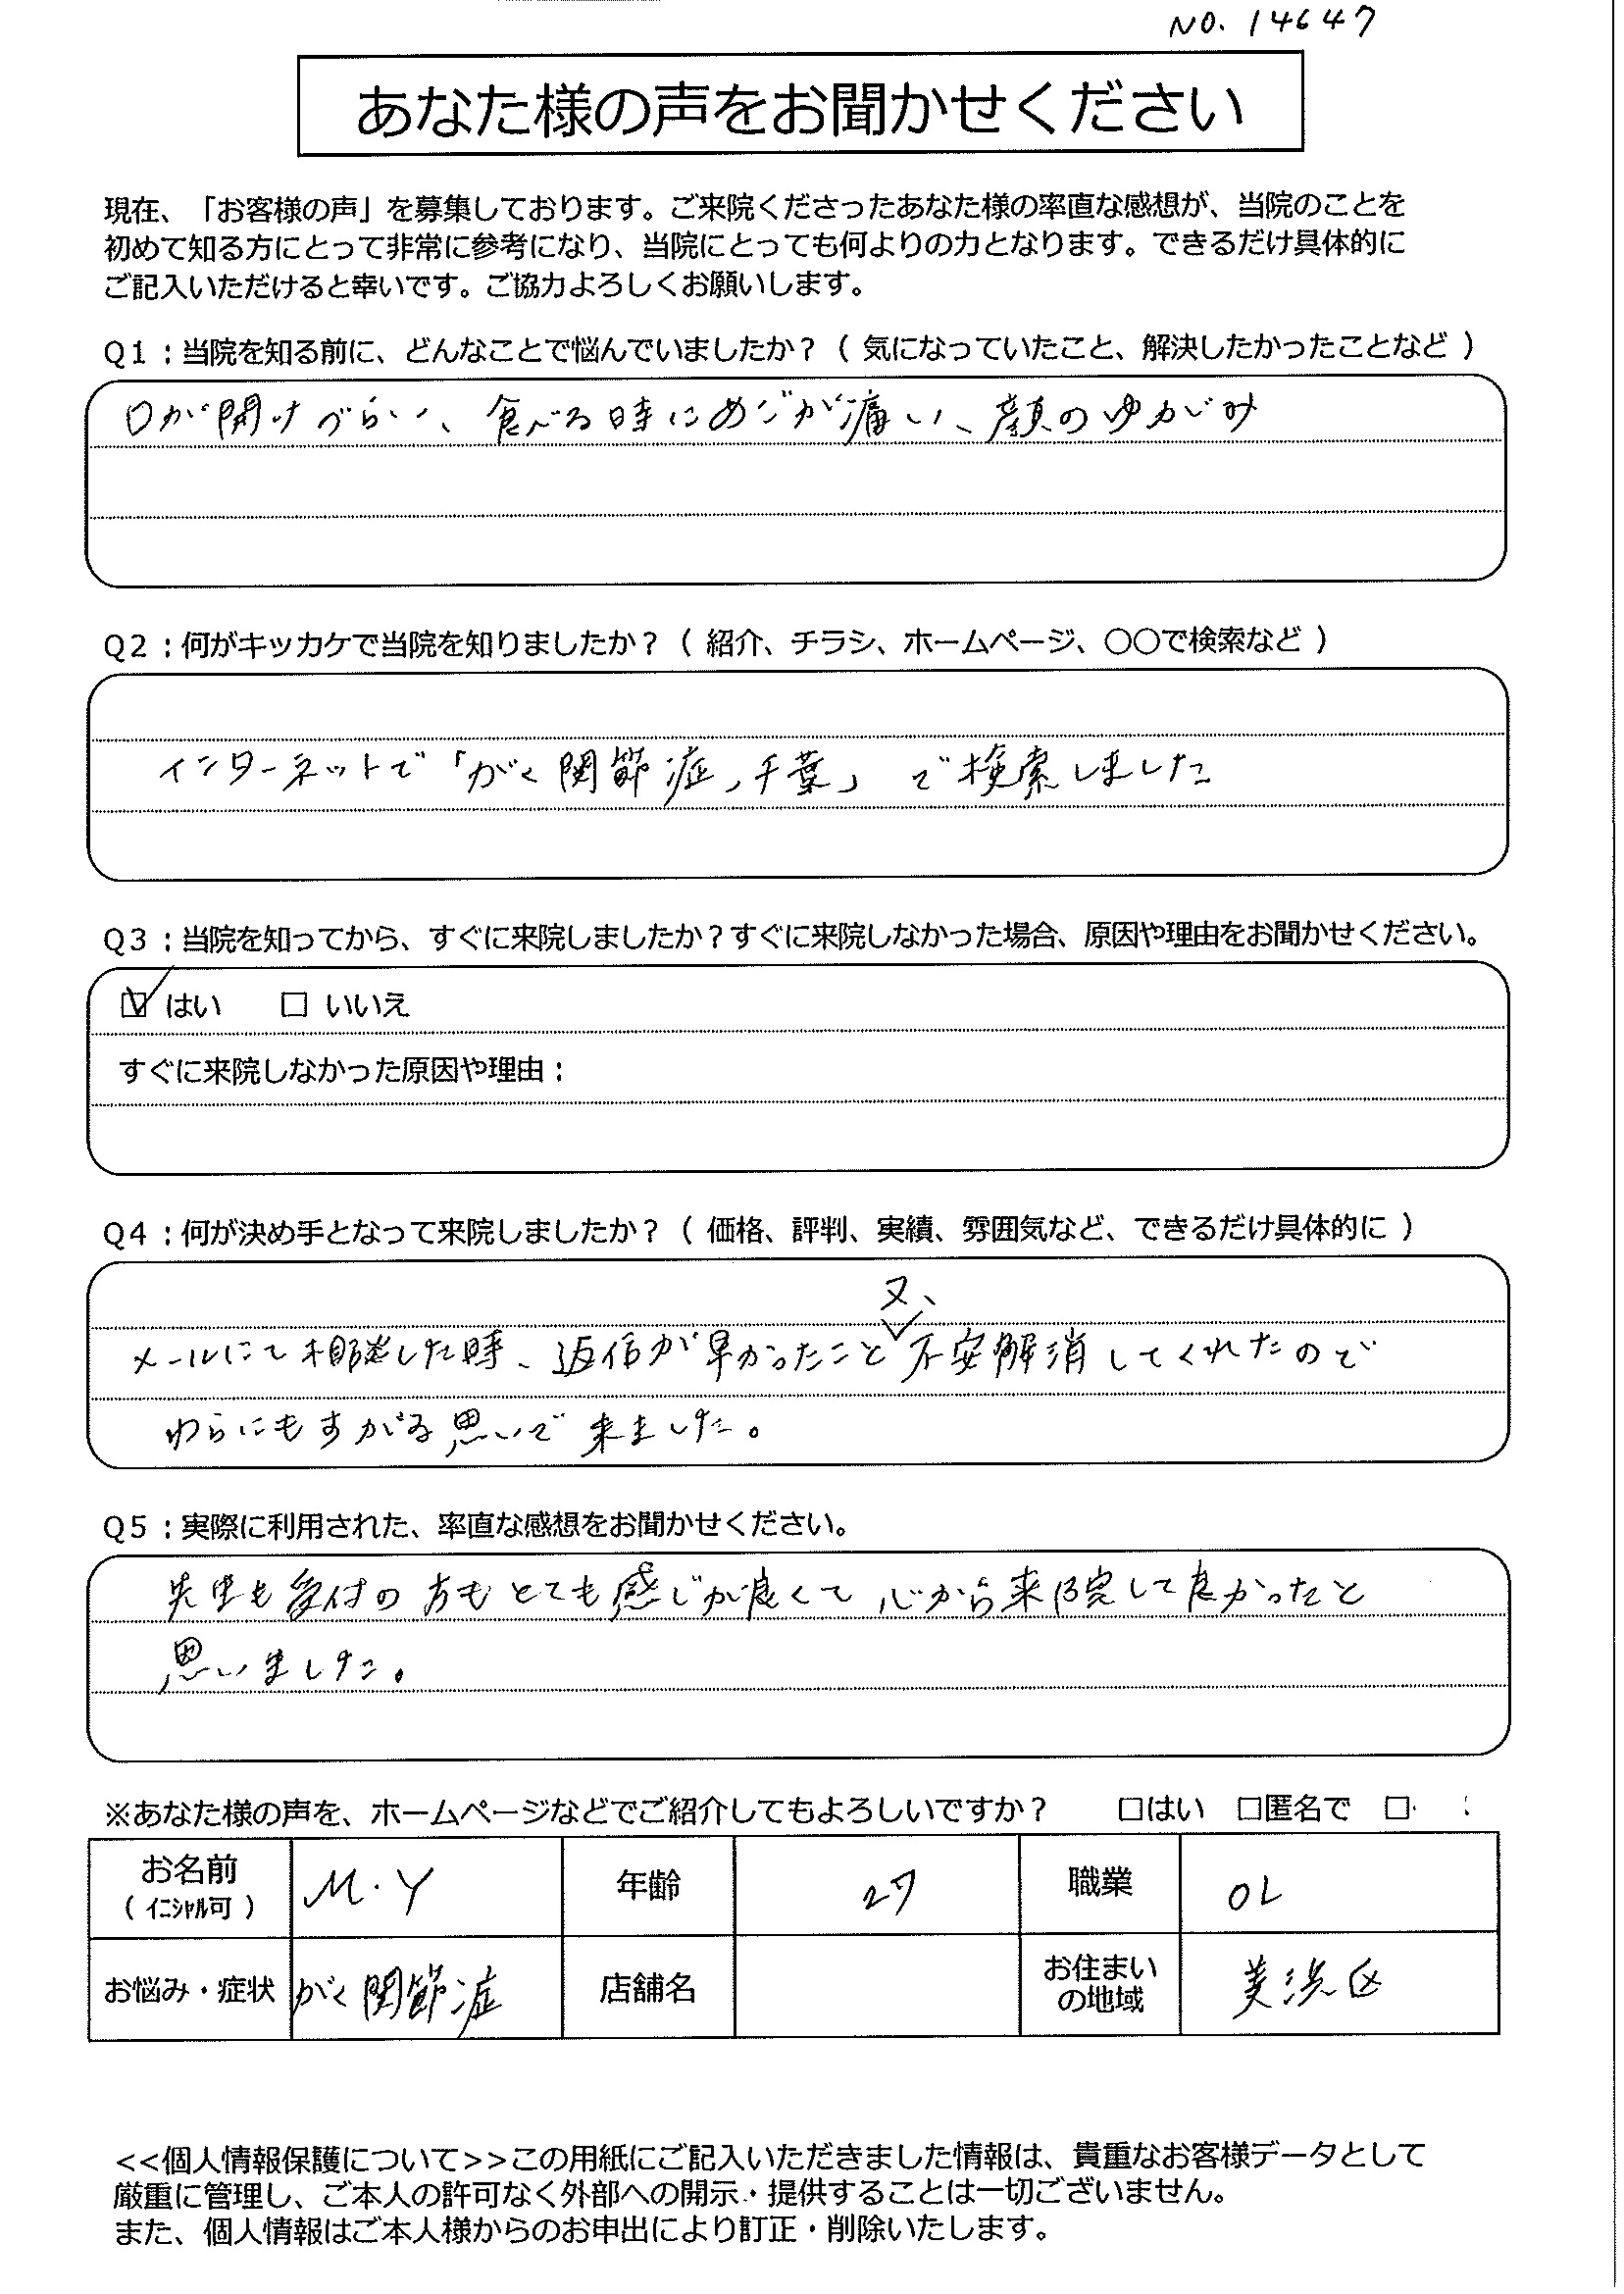 NO. 14647
あなた様の声をお聞かせください
現在、「お客様の声」を募集しております。ご来院くださったあなた様の率直な感想が、当院のことを
初めて知る方にとって非常に参考になり、当院にとっても何よりの力となります。できるだけ具体的に
ご記入いただけると幸いです。ご協力よろしくお願いします。
Q1：当院を知る前に、どんなことで悩んでいましたか？（ 気になっていたこと、解決したかったことなど ）
口が開けづらい、食べる時にあごが痛い、顔のゆがみ
Q2：何がキッカケで当院を知りましたか？（ 紹介、チラシ、ホームページ、○○で検索など ）
インターネットで「がく関節症、千葉」で検索しました
Q3：当院を知ってから、すぐに来院しましたか？すぐに来院しなかった場合、原因や理由をお聞かせください。
☑ はい □ いいえ
すぐに来院しなかった原因や理由：
Q4：何が決め手となって来院しましたか？（ 価格、評判、実績、雰囲気など、できるだけ具体的に ）
又、
メールにて相談した時、返信が早かったこと不安解消してくれたので
わらにもすがる思いで来ました。
Q5：実際に利用された、率直な感想をお聞かせください。
先生も受付の方もとても感じが良くて心から来院して良かったと
思いました。
※あなた様の声を、ホームページなどでご紹介してもよろしいですか？ □はい □匿名で □
お名前 M.Y 年齢 27 職業 OL
（ ｲﾆｼｬﾙ可 ）
お悩み・症状 がく関節症 店舗名 お住まいの地域 美浜区
<<個人情報保護について>>この用紙にご記入いただきました情報は、貴重なお客様データとして
厳重に管理し、ご本人の許可なく外部への開示・提供することは一切ございません。
また、個人情報はご本人様からのお申出により訂正・削除いたします。